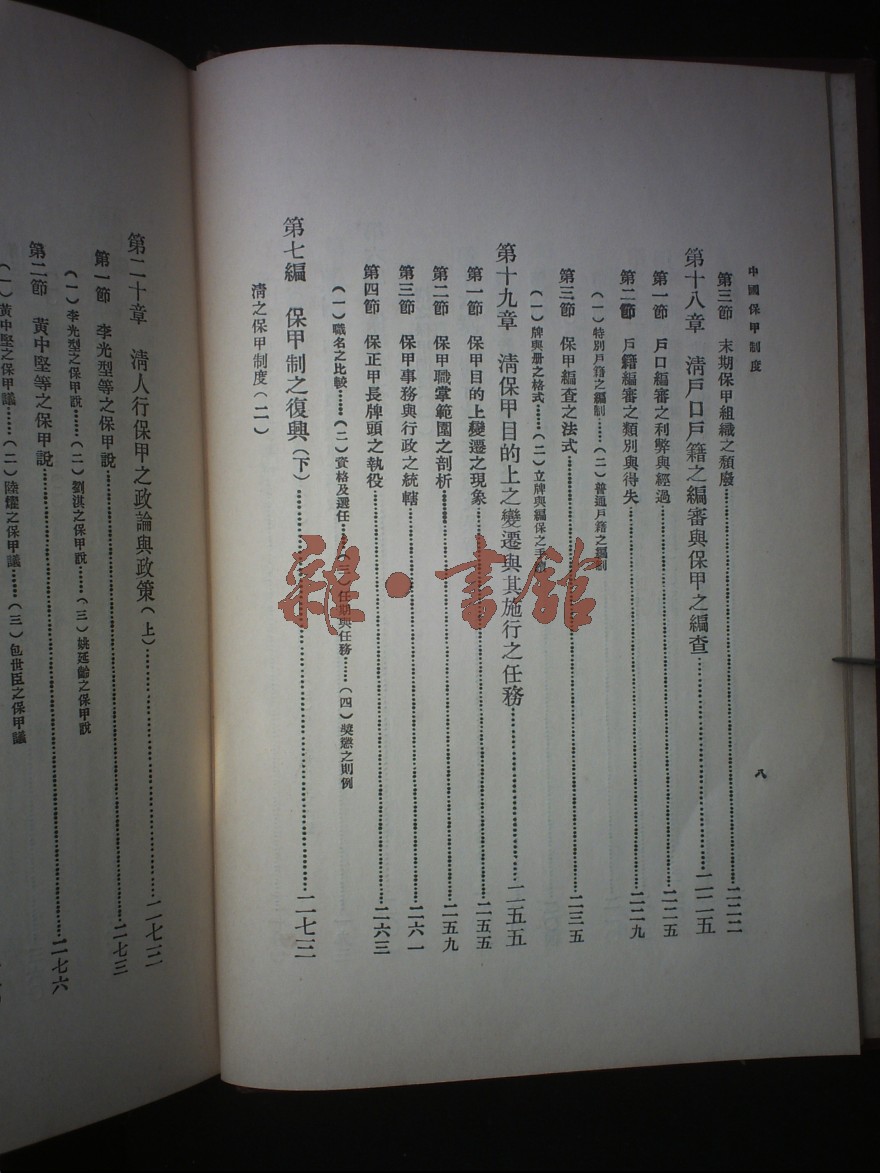 中國保甲制度
第三節　末期保甲組織之頹廢……二二二
第十八章　清戶口戶籍之編審與保甲之編查……二二五
第一節　戶口編審之利弊與經過……二二五
第二節　戶籍編審之類別與得失……二二九
（一）特別戶籍之編制……（二）普通戶籍之編制
第三節　保甲編查之法式……二三五
（一）牌與册之格式……（二）立牌與編保之手
第十九章　清保甲目的上之變遷與其施行之任務……二五五
第一節　保甲目的上變遷之現象……二五五
第二節　保甲職掌範圍之剖析……二五九
第三節　保甲事務與行政之統轄……二六一
第四節　保正甲長牌頭之執役……二六三
（一）職名之比較……（二）資格及選任……（三）任期與任務……（四）獎懲之則例
第七編　保甲制之復興（下）……二七三
清之保甲制度（二）
八
第二十章　清人行保甲之政論與政策（上）……二七三
第一節　李光型等之保甲說……二七三
（一）李光型之保甲說……（二）劉淇之保甲說……（三）姚延齡之保甲說
第二節　黃中堅等之保甲說……二七六
（一）黃中堅之保甲議……（二）陸燿之保甲議……（三）包世臣之保甲議
雜·書館